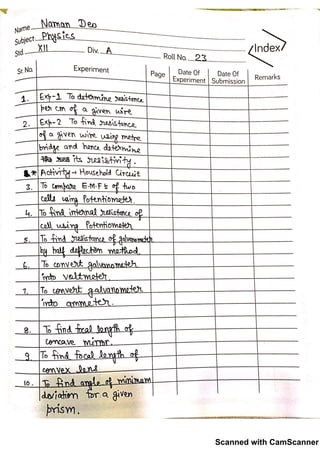 Name Naman Deo
Subject Physics
Std. XII Div. A Roll No. 23 <Index>
Sr.No. Experiment Page Date Of Experiment Date Of Submission Remarks
1. Exp-1 To determine resistance
per cm of a given wire
2. Exp-2 To find resistance
of a given wire using metre
bridge and hence determine
its resistivity.
* Activity → Household Circuit
3. To compare E.M.F's of two
cells using Potentiometer.
4. To find internal resistance of
cell using Potentiometer
5. To find resistance of galvanometer
by half deflection method.
6. To convert galvanometer
into voltmeter.
7. To convert galvanometer
into ammeter.
8. To find focal length of
concave mirror.
9. To find focal length of
convex lens
10. To find angle of minimum
deviation for a given
prism.
Scanned with CamScanner